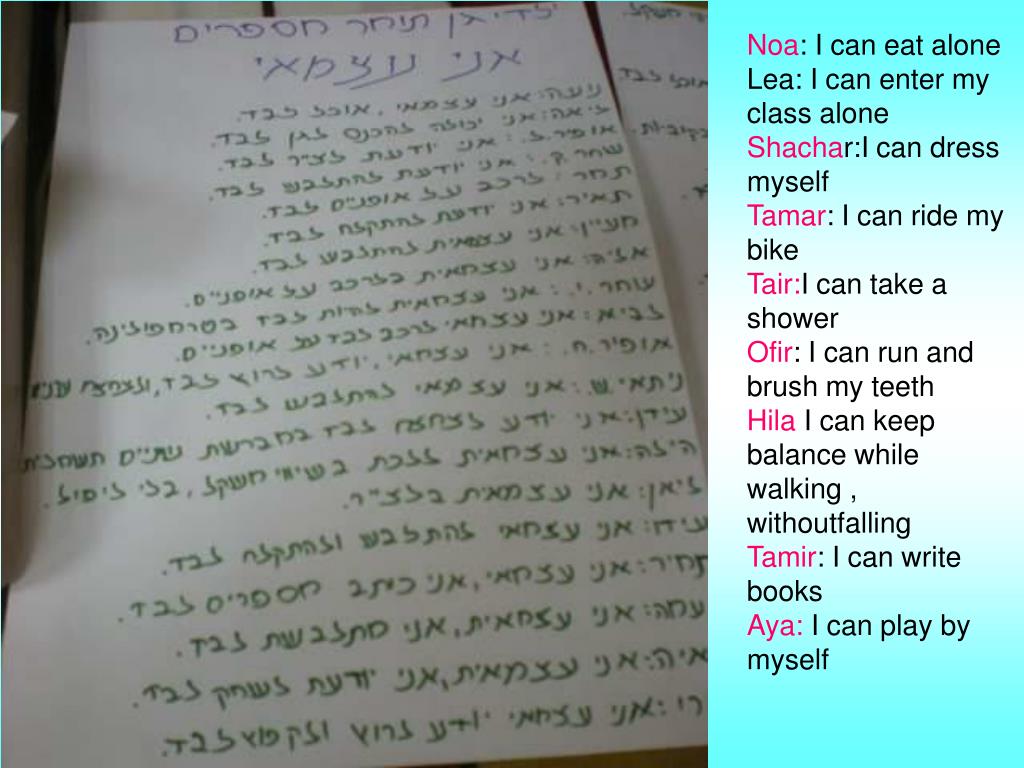 ילדי גן תומר מספרים
אני עצמאי
נועה: אני עצמאי, אוכל לבד.
ליאה: אני יכולה להכנס לגן לבד.
אופיר.ל.: אני יודעת לצייר לבד.
שחר.ק.: אני יודעת להתלבש לבד.
תמר: לרכב על אופניים לבד.
תאיר: אני יודעת להתקלח לבד.
מעיין: אני עצמאית להתלבש לבד.
אליה: אני עצמאית בלרכב על אופניים.
עומר.י.: אני עצמאית להיות לבד בטרמפולינה.
לביא: אני עצמאי לרכב לבד על אופניים.
אופיר.ח.: אני עצמאי, יודע לרוץ לבד, ולצחצח שיניים
ניתאי.ש.: אני עצמאי להתלבש לבד.
עידן: אני יודע לצחצח לבד במברשת שיניים חשמלית
הילה: אני עצמאית ללכת בשיווי משקל, בלי ליפול.
ליאן: אני עצמאית בלצייר.
עידו: אני עצמאי להתלבש ולהתקלח לבד.
תמיר: אני עצמאי, אני כותב מספרים לבד.
אני עצמאית, אני מתלבשת לבד.
איה: אני עצמאית, אני יודעת לשחק לבד.
אני עצמאי יודע לרוץ ולקפוץ לבד.
Noa: I can eat alone
Lea: I can enter my
class alone
Shachar:I can dress
myself
Tamar: I can ride my
bike
Tair:I can take a
shower
Ofir: I can run and
brush my teeth
Hila I can keep
balance while
walking ,
withoutfalling
Tamir: I can write
books
Aya: I can play by
myself